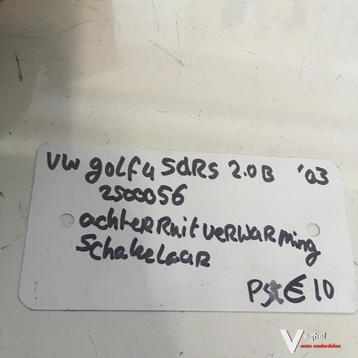 VW golf 4 5dRs 2.0B '03
2500056
achterRuitverwarming
Schakelaar
Pst € 10
Veghel
auto onderdelen